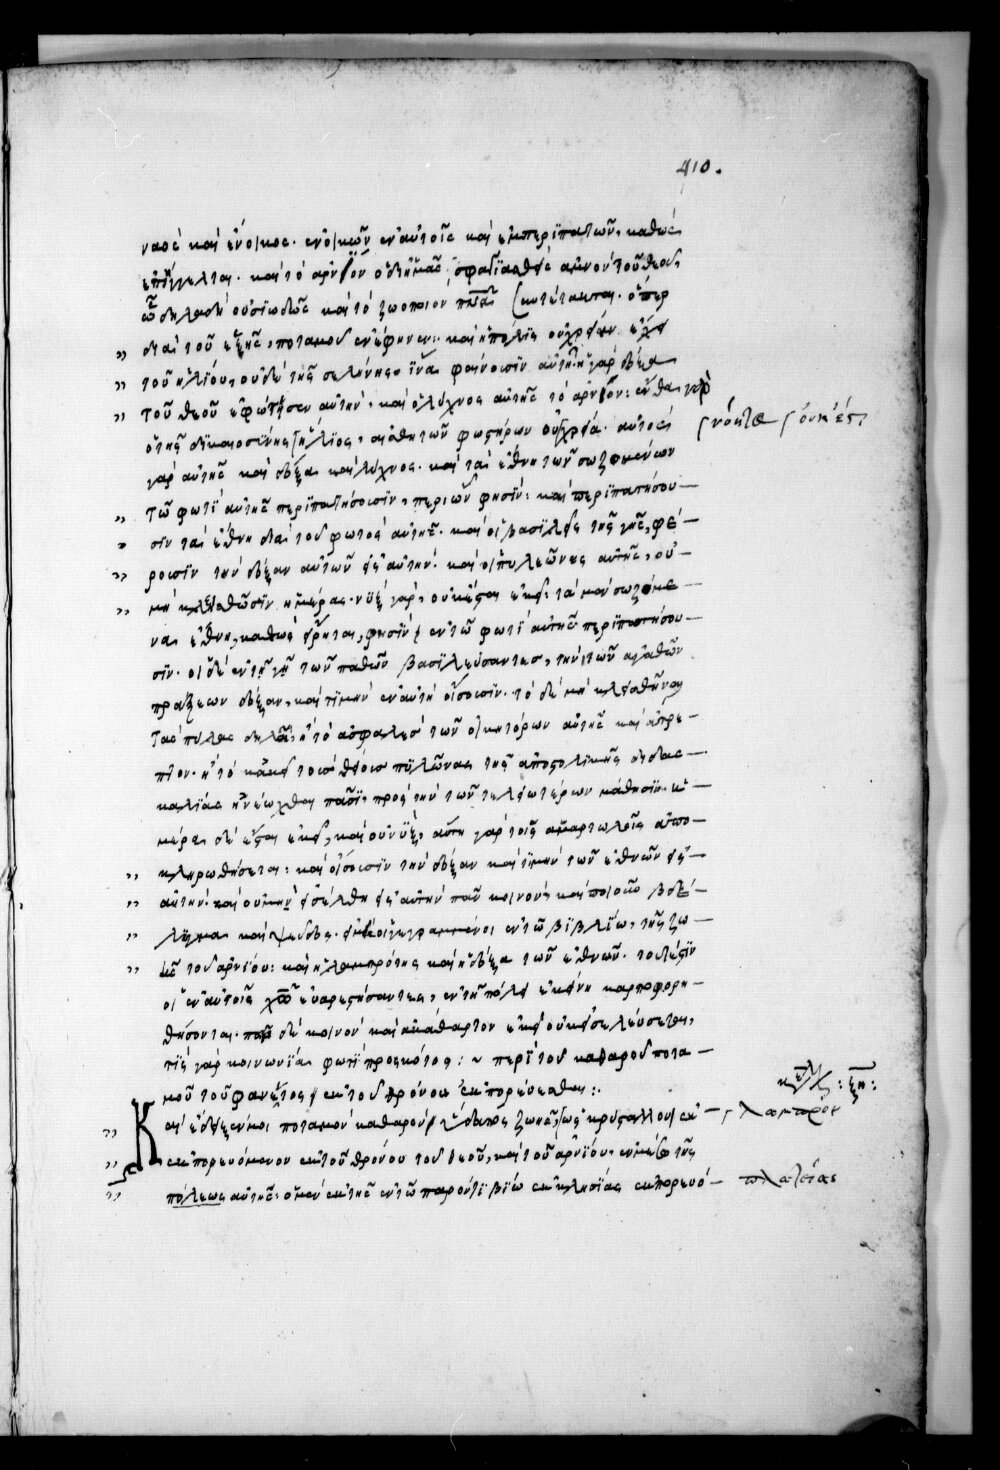 410.
ναὸς καὶ ἔνοικος. ἐνοικῶν ἐν αὐτοῖς καὶ ἐμπεριπατῶν, καθὼς
ἐπήγγελται. καὶ τὸ ἀρνίον ὁ δι ἡμᾶς σφαγιασθεὶς ἀμνὸς τοῦ θεοῦ,
ᾧ δηλαδὴ οὐσιωδῶς καὶ τὸ ζωοποιὸν πνα συντέτακται. ὅπερ
διὰ τοῦ ἑξῆς, ποταμοῦ ἐνέφηνεν: καὶ ἡ πόλις οὐ χρείαν ἔχει
τοῦ ἡλίου, οὐδὲ τῆς σελήνης, ἵνα φαίνωσιν αὐτῇ. ἡ γὰρ δόξα
τοῦ θεοῦ ἐφώτισεν αὐτήν, καὶ ὁ λύχνος αὐτῆς τὸ ἀρνίον: ἔνθα γὰρ
ὁ τῆς δικαιοσύνης ἥλιος, αἰσθητῶν φωστήρων οὐ χρεία. αὐτὸς
γὰρ αὐτῆς καὶ δόξα καὶ λύχνος. καὶ τὰ ἔθνη τῶν σωζομένων
τῷ φωτὶ αὐτῆς περιπατήσουσιν, περὶ ὧν φησίν: καὶ περιπατήσου–
σιν τὰ ἔθνη διὰ τοῦ φωτὸς αὐτῆς. καὶ οἱ βασιλεῖς τῆς γῆς, φέ–
ρουσιν τὴν δόξαν αὐτῶν εἰς αὐτήν. καὶ οἱ πυλῶνες αὐτῆς, οὐ–
μὴ κλεισθῶσιν ἡμέρας. νὺξ γὰρ, οὐκ ἔσται ἐκεῖ: τὰ μὲν σωζόμε–
να ἔθνη, καθὼς εἴρηται, φησὶν ἐν τῷ φωτὶ αὐτῆς περιπατήσου–
σιν. οἱ δὲ ἐν τῇ γῇ τῶν παθῶν βασιλεύσαντες, τὴν τῶν ἀγαθῶν
πράξεων δόξαν, καὶ τιμὴν ἐν αὐτῇ οἴσουσιν. τὸ δὲ μὴ κλεισθῆναι
τὰς πύλας δηλοῖ, ἢ τὸ ἀσφαλὲς τῶν οἰκητόρων αὐτῆς καὶ ἄτρε–
πτον. ἢ τὸ κἀκεῖ τοὺς θείους πυλῶνας τῆς ἀποστολικῆς διδασ–
καλίας ἠνεῴχθαι πᾶσι, πρὸς τὴν τῶν τελειοτέρων μάθησιν. ἡ–
μέρα δὲ ἔσται ἐκεῖ, καὶ οὐ νὺξ, αὕτη γὰρ τοῖς ἁμαρτωλοῖς ἀπο–
κληρωθήσεται: καὶ οἴσουσιν τὴν δόξαν καὶ τιμὴν τῶν ἐθνῶν εἰς–
αὐτήν. καὶ οὐ μὴ εἰσέλθῃ εἰς αὐτὴν πᾶν κοινὸν, καὶ ποιοῦν βδέ–
λυγμα καὶ ψεῦδος. εἰ μὴ οἱ γεγραμμένοι ἐν τῷ βιβλίῳ, τῆς ζω–
ῆς τοῦ ἀρνίου: καὶ ἡ λαμπρότης καὶ ἡ δόξα τῶν ἐθνῶν. τουτέστιν
οἱ ἐν αὐτοῖς χῷ εὐαρεστήσαντες, ἐν τῇ πόλει ἐκείνῃ καρποφορη–
θήσονται. πᾶν δὲ κοινὸν καὶ ἀκάθαρτον ἐκεῖ οὐκ εἰσελεύσεται,
τίς γὰρ κοινωνία φωτὶ πρὸς σκότος: ~ περὶ τοῦ καθαροῦ ποτα–
μοῦ τοῦ φανέντος ἐκ τοῦ θρόνου ἐκπορεύεσθαι:.
Καὶ ἔδειξέν μοι ποταμὸν καθαρὸν ὕδατος ζωῆς, ὡς κρύσταλλον ἐκ–
ἐκπορευόμενον ἐκ τοῦ θρόνου τοῦ θεοῦ, καὶ τοῦ ἀρνίου. ἐν μέσῳ τῆς
πόλεως αὐτῆς: ὁ μὲν ἐκ τῆς ἐν τῷ παρόντι βίῳ ἐκκλησίας ἐκπορευό–
λαμπρὸν
πλατείας